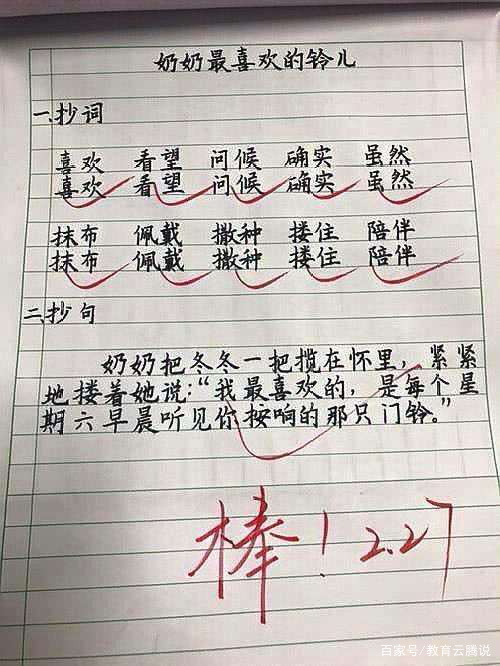 奶奶最喜欢的铃儿
一.抄词
喜欢 看望 问候 确实 虽然
喜欢 看望 问候 确实 虽然
抹布 佩戴 撒种 搂住 陪伴
抹布 佩戴 撒种 搂住 陪伴
二.抄句
奶奶把冬冬一把揽在怀里，紧紧
地搂着她说：“我最喜欢的，是每个星
期六早晨听见你按响的那只门铃。”
棒！2.27
百家号/教育云腾说